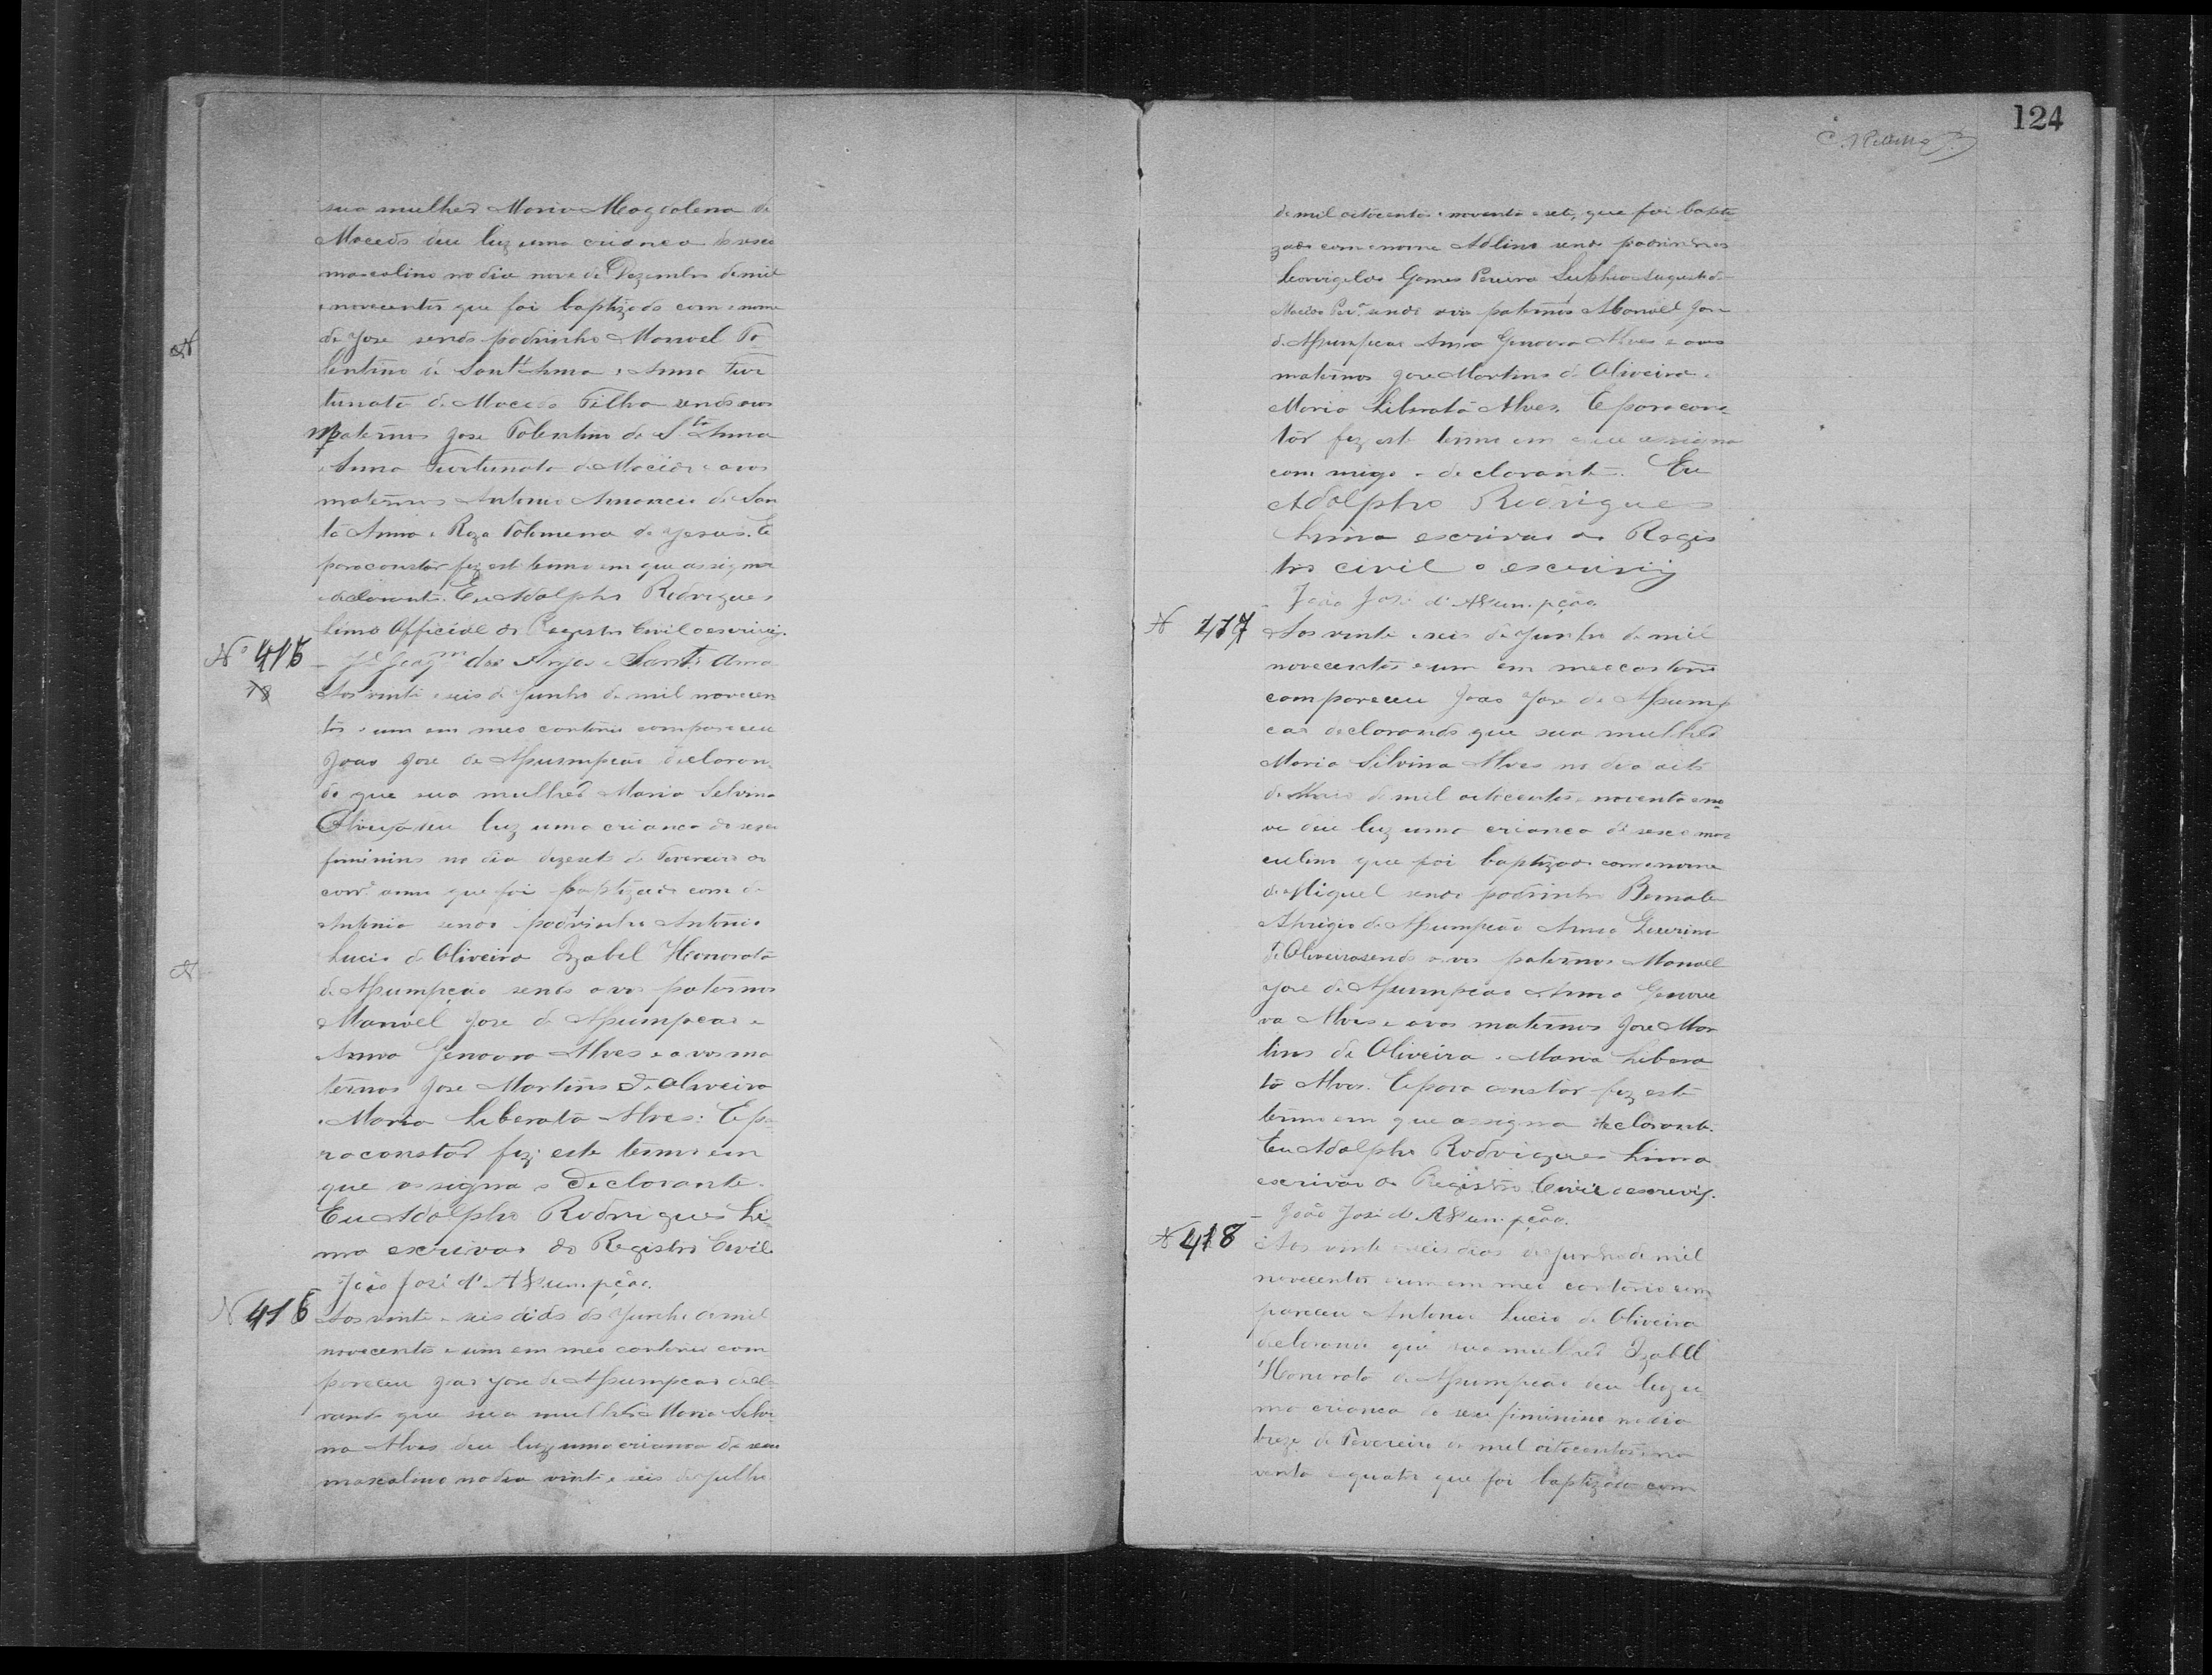 sua mulher Maria Magdalena de
Macedo deu luz uma crianca do sexo
mascolino no dia nove de Dezembro de mil
e novecentos que foi baptizado com o nome
de Jose sendo padrinho Manoel To
lentino de Sant'Anna e Anna Fur
tunata de Macedo Filha sendo avos
paternos Jose Tolentino de Sta Anna
e Anna Furtunata de Macedo e avos
maternos Antonio Amancio de San
ta Anna e Roza Folemena de Jesus. E
para constar fez este termo em que assigna
o declarante. Eu Adolpho Rodrigues
Lima Official do Registro Civil o escrivij.
Je Joaqm dos Anjos e Sant'Anna
No 415
Aos vinte e seis de Junho de mil novecen
tos e um em meo cartorio compareceu
Joao Jose de Assumpção declaran
do que sua mulher Maria Selvina
deu luz uma crianca do sexo
feminino no dia dezesete de Fevereiro do
corre anno que foi baptizado com de
Antonia sendo padrinho Antonio
Lucio de Oliveira Izabel Honorata
de Assumpção sendo avos paternos
Manoel Jose de Assumpcao e
Anna Genovra Alves e avos ma
ternos Jose Martins de Oliveira
e Maria Liberata Alves. E pa
ra constar fez este termo em
que assigna o Declarante.
Eu Adolpho Rodrigues Li
ma escrivao do Registro Civil
João José d'Assumpção.
N 416
Aos vinte e seis dias de Junho de mil
novecentos e um em meo cartorio com
pareceu Joao Jose de Assumpcao decla
rando que sua mulher Maria Selvi
na Alves deu luz uma crianca do sexo
mascolino no dia vinte e seis de Julho
124
de mil oitocentos e noventa e sete, que foi bapti
zado com o nome Adlino sendo padrinhos
Leovigeldo Gomes Pereira
Macedo sendo avos paternos Manoel Jose
de Assumpcao Anna Genovra Alves e avos
maternos Jose Martins de Oliveira e
Maria Liberata Alves. E para cons
tar fez este termo em que assigna
com migo o declarante. Eu
Adolpho Rodrigues
Lima escrivao do Regis
tro civil o escrivij
João José d'Assumpção.
N 417
Aos vinte e seis de Junho de mil
novecentos e um em meo cartorio
compareceu Joao Jose de Assump
cao declarando que sua mulher
Maria Silvina Alves no dia oito
de Maio de mil oitocentos e noventa e no
ve deu luz uma crianca do sexo mas
culino que foi baptizado com o nome
de Miguel sendo padrinho
Aprigio de Assumpção Anna
de Oliveira sendo avos paternos Manoel
Jose de Assumpcao Anna Genove
va Alves e avos maternos Jose Mar
tins de Oliveira e Maria Libera
ta Alves. E para constar fez este
termo em que assigna declarante.
Eu Adolpho Rodrigues Lima
escrivão do Registro Civil o escrevij.
João José d'Assumpção.
N 418
Aos vinte e seis dias de Junho de mil
novecentos e um em meo cartorio com
pareceu Antonio Lucio de Oliveira
declarando que sua mulher Izabel
Honorata de Assumpção deu luz u
ma crianca do sexo feminino no dia
treze de Fevereiro de mil oitocentos e no
venta e quatro que foi baptizada com